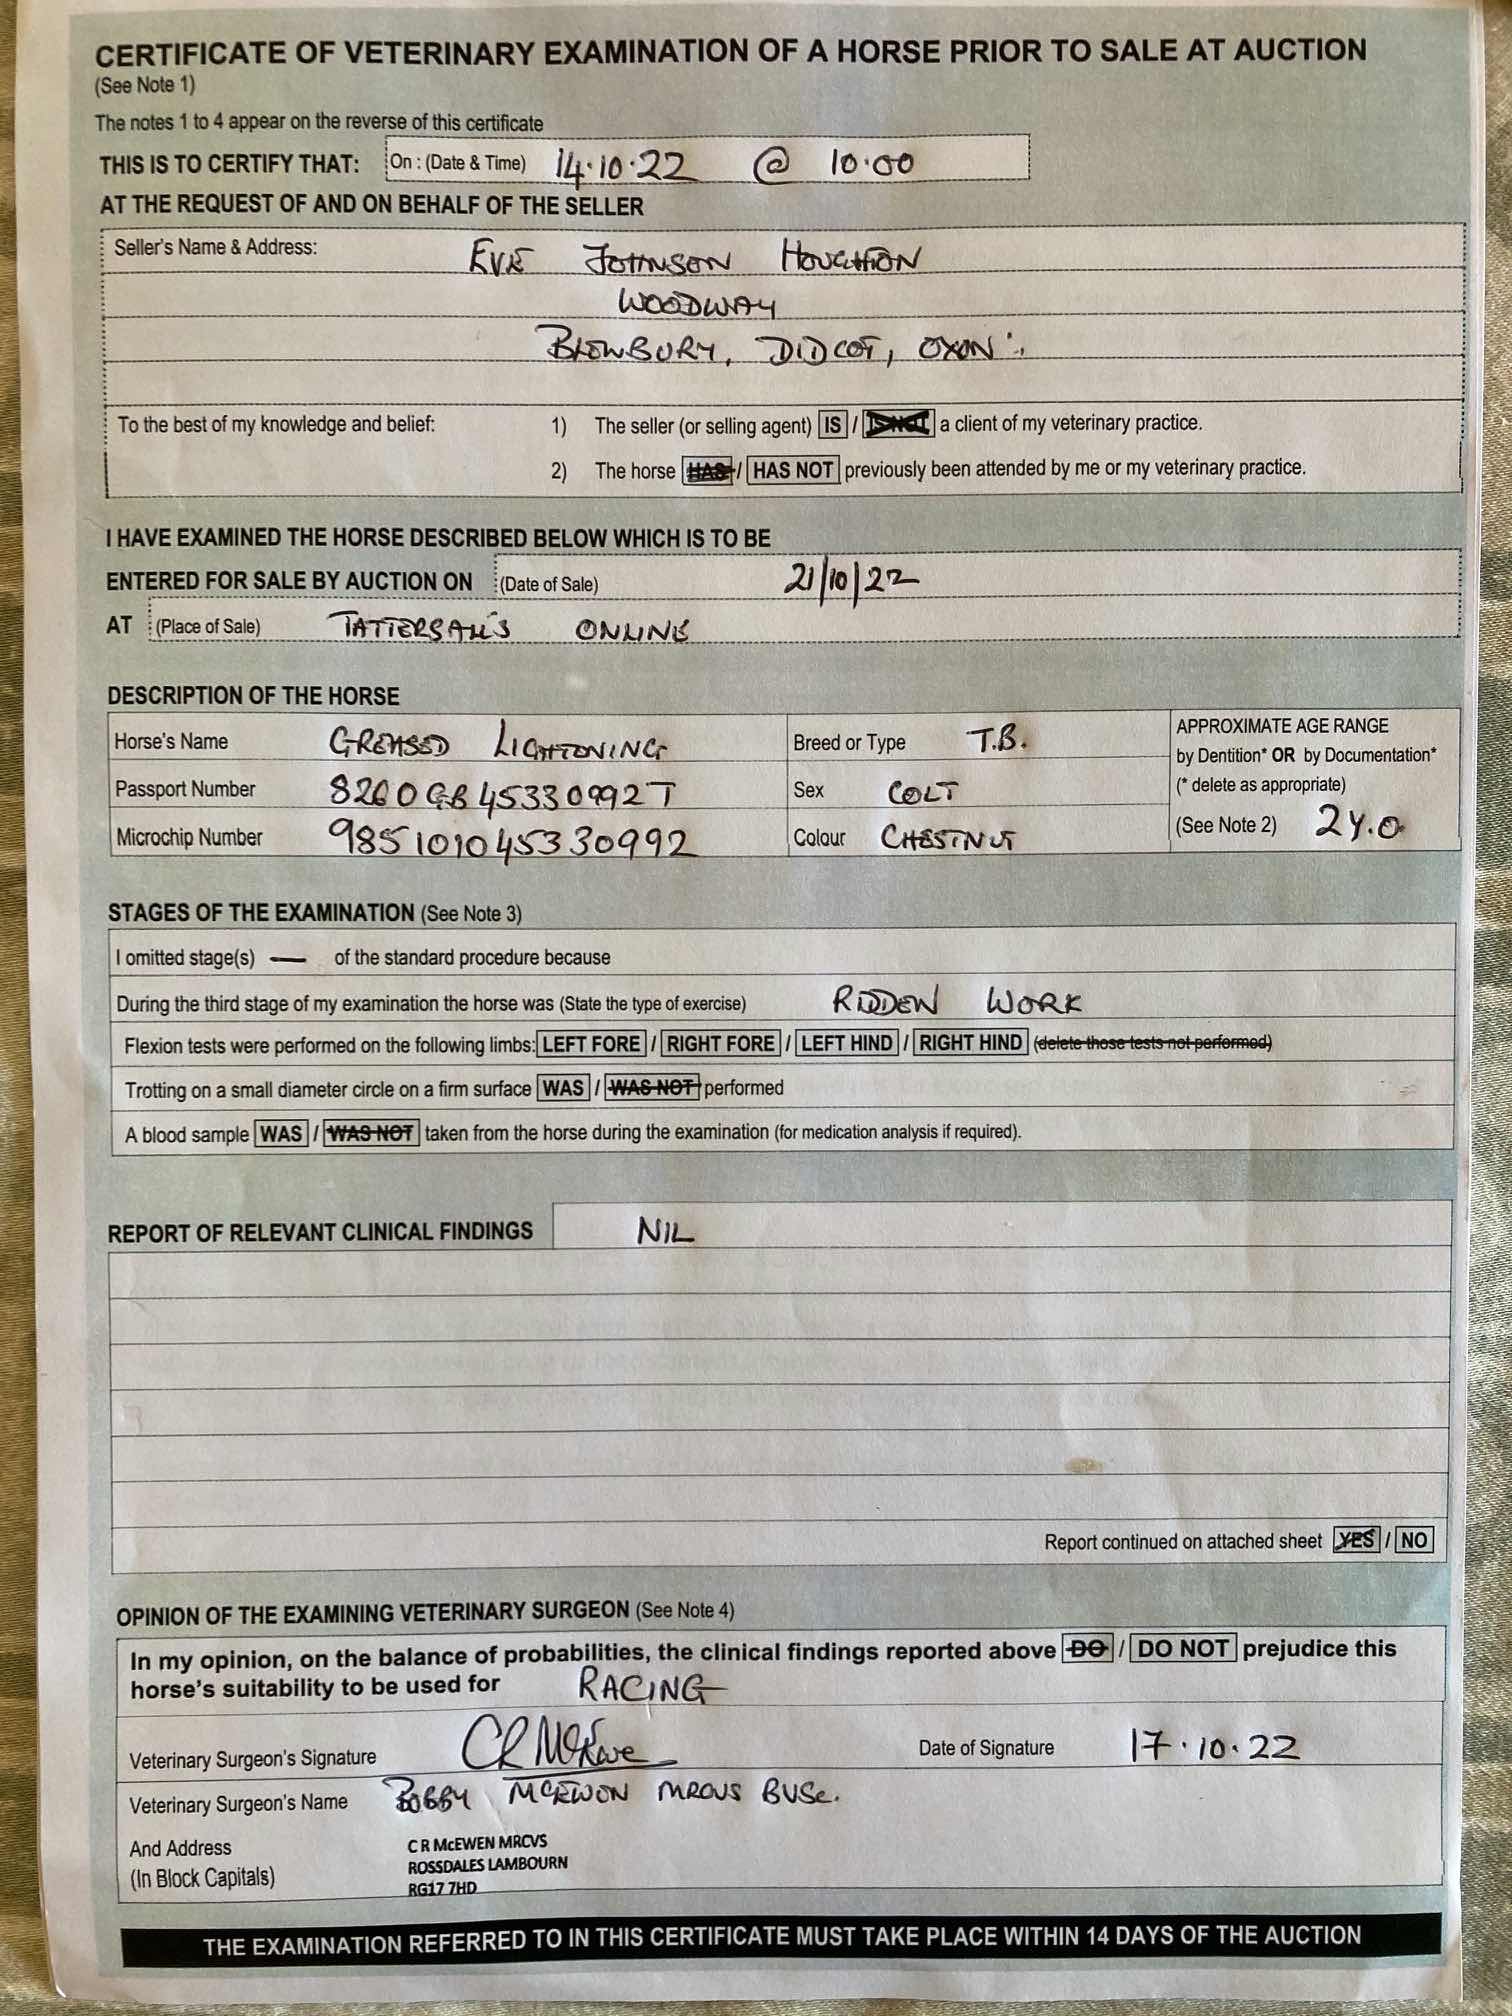 CERTIFICATE OF VETERINARY EXAMINATION OF A HORSE PRIOR TO SALE AT AUCTION
(See Note 1)
The notes 1 to 4 appear on the reverse of this certificate
THIS IS TO CERTIFY THAT: On : (Date & Time) 14.10.22 @ 10.00
AT THE REQUEST OF AND ON BEHALF OF THE SELLER
Seller's Name & Address: EVE JOHNSON HOUGHTON
WOODWAY
BLEWBURY, DIDCOT, OXON
To the best of my knowledge and belief: 1) The seller (or selling agent) IS / IS NOT a client of my veterinary practice.
2) The horse HAS / HAS NOT previously been attended by me or my veterinary practice.
I HAVE EXAMINED THE HORSE DESCRIBED BELOW WHICH IS TO BE
ENTERED FOR SALE BY AUCTION ON (Date of Sale) 21/10/22
AT (Place of Sale) TATTERSALLS ONLINE
DESCRIPTION OF THE HORSE
Horse's Name GREASED LIGHTONING Breed or Type T.B. APPROXIMATE AGE RANGE
by Dentition* OR by Documentation*
Passport Number 8260GB45330992T Sex COLT (* delete as appropriate)
Microchip Number 985101045330992 Colour CHESTNUT (See Note 2) 2Y.O.
STAGES OF THE EXAMINATION (See Note 3)
I omitted stage(s) — of the standard procedure because
During the third stage of my examination the horse was (State the type of exercise) RIDDEN WORK
Flexion tests were performed on the following limbs: LEFT FORE / RIGHT FORE / LEFT HIND / RIGHT HIND (delete those tests not performed)
Trotting on a small diameter circle on a firm surface WAS / WAS NOT performed
A blood sample WAS / WAS NOT taken from the horse during the examination (for medication analysis if required).
REPORT OF RELEVANT CLINICAL FINDINGS NIL
Report continued on attached sheet YES / NO
OPINION OF THE EXAMINING VETERINARY SURGEON (See Note 4)
In my opinion, on the balance of probabilities, the clinical findings reported above DO / DO NOT prejudice this
horse's suitability to be used for RACING
Veterinary Surgeon's Signature Date of Signature 17.10.22
Veterinary Surgeon's Name BOBBY MCEWON MRCVS BVSc.
And Address C R McEWEN MRCVS
ROSSDALES LAMBOURN
(In Block Capitals) RG17 7HD
THE EXAMINATION REFERRED TO IN THIS CERTIFICATE MUST TAKE PLACE WITHIN 14 DAYS OF THE AUCTION